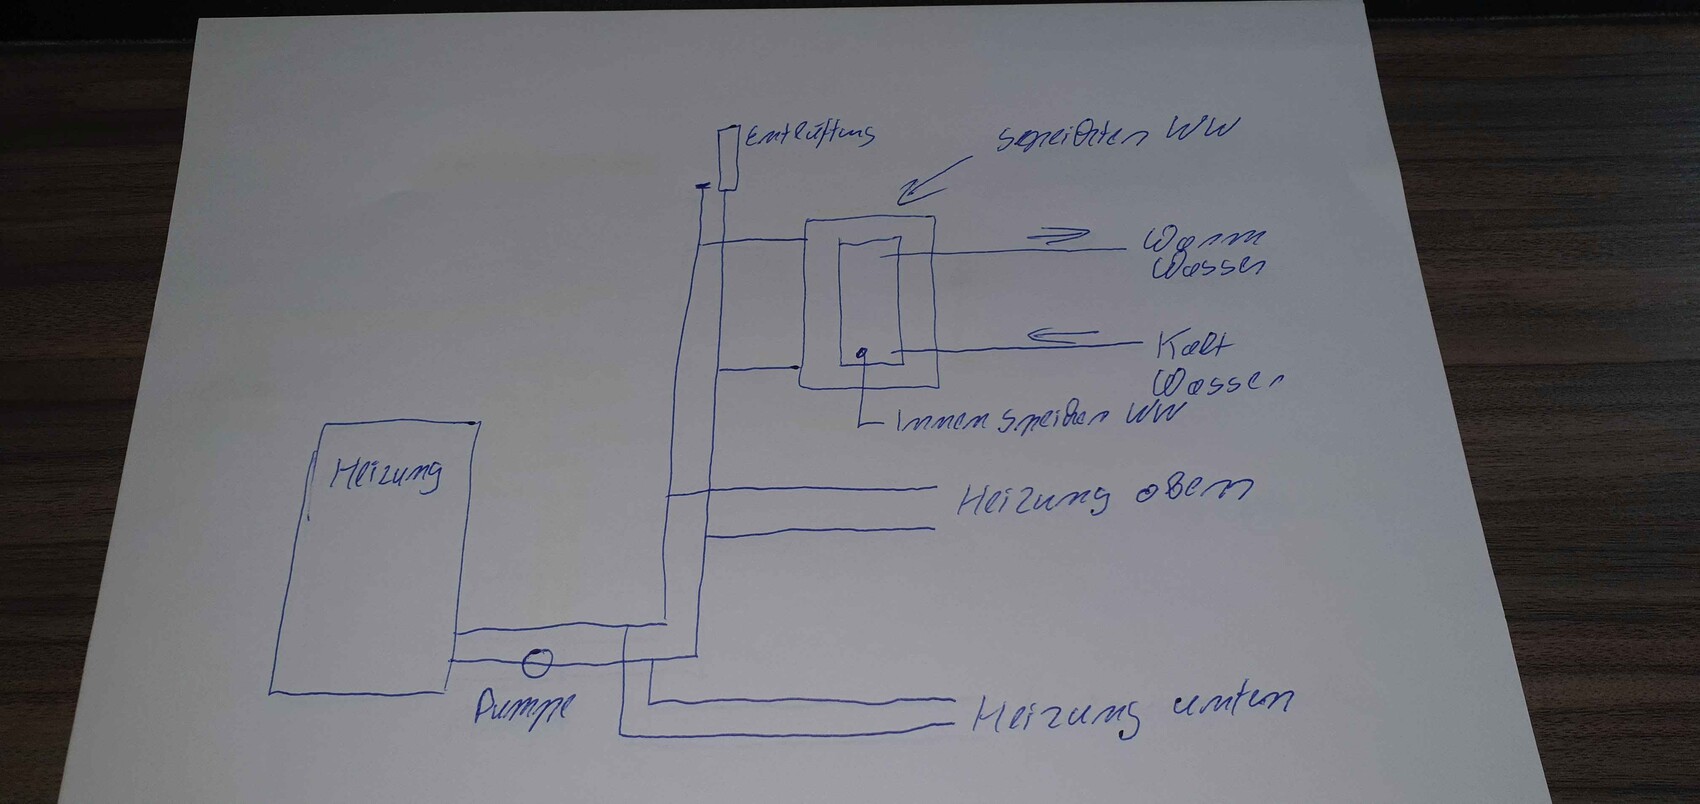 Entlüftung
Speicher WW
Warm
Wasser
Kalt
Wasser
Innen Speicher WW
Heizung
Heizung oben
Pumpe
Heizung unten